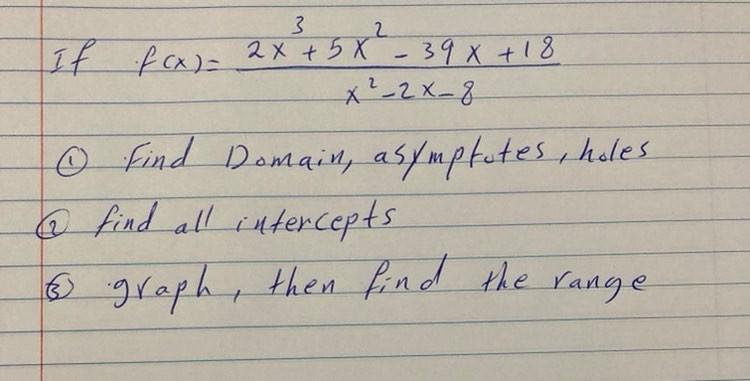 If f(x) = 2x³ + 5x² - 39x + 18
x² - 2x - 8
① Find Domain, asymptotes, holes
② find all intercepts
③ graph, then find the range